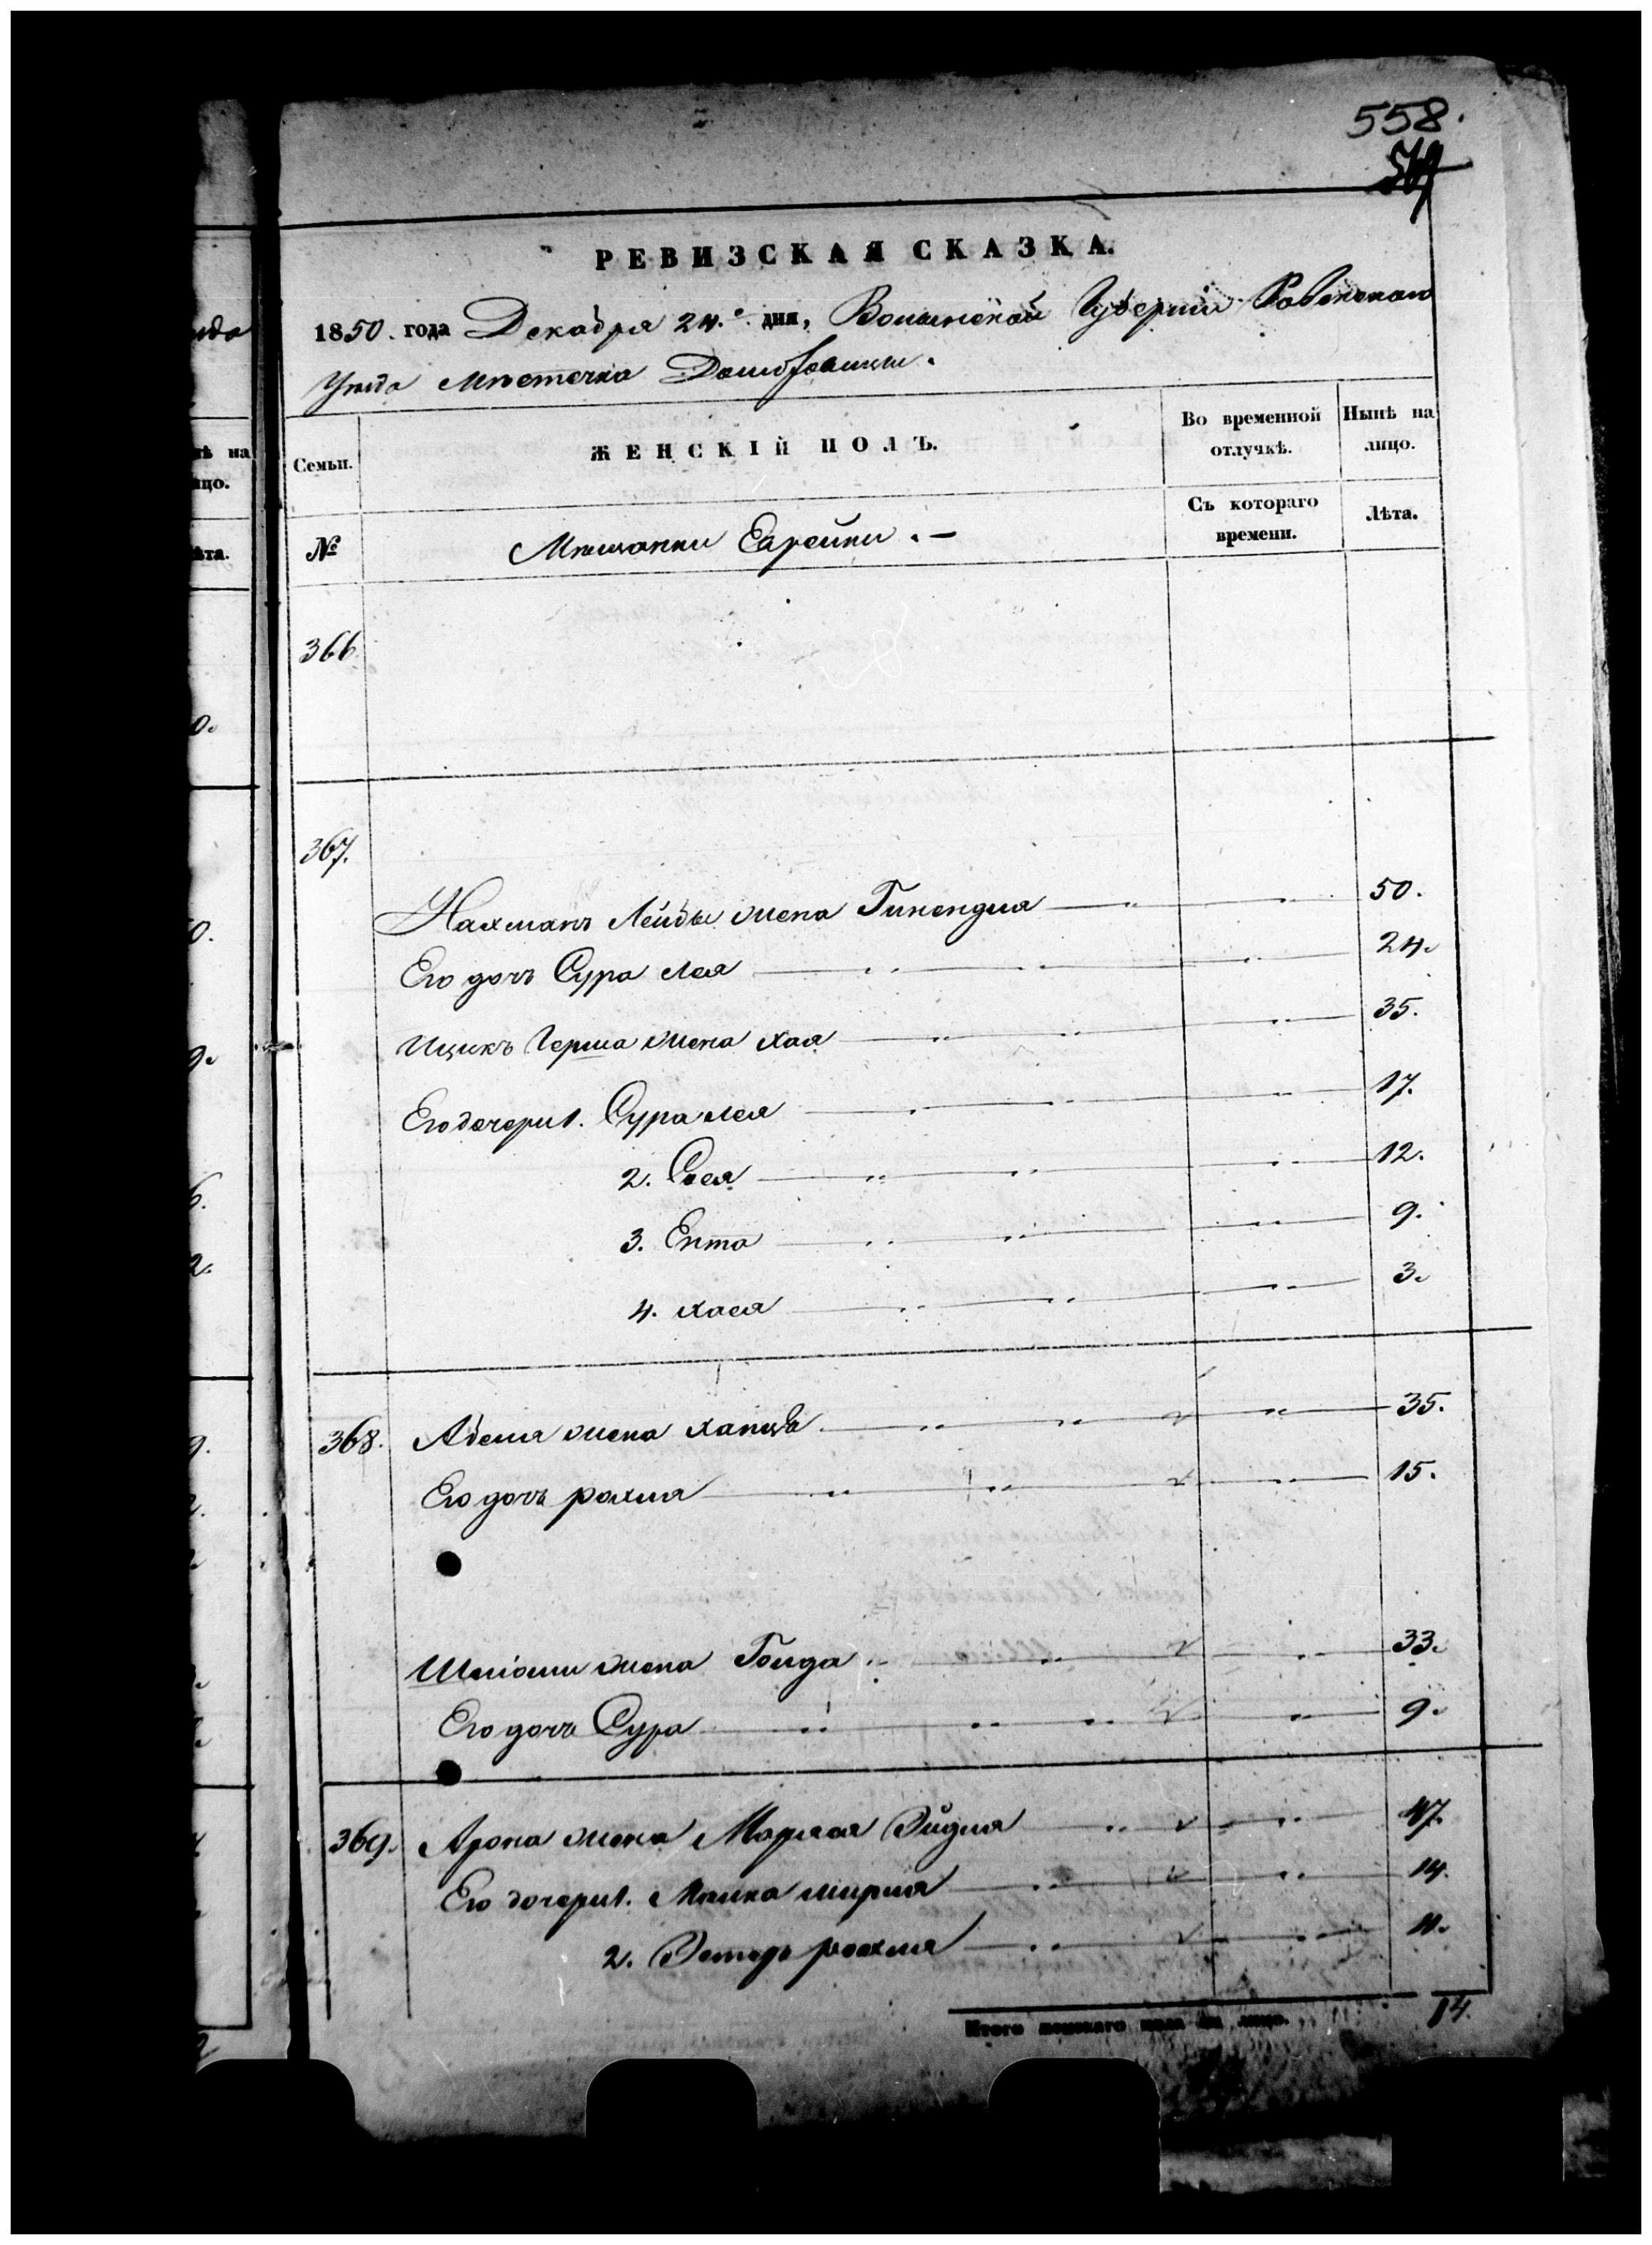 558.
РЕВИЗСКАЯ СКАЗКА.
1850. года Декабря 24.го дня, Волынской Губерніи Ровенскаго
Уезда Местечка Домбровицы.
Семьи.
ЖЕНСКІЙ ПОЛЪ.
Во временной отлучкѣ.
Нынѣ на лицо.
№
Мещанки Еврейки. —
Съ котораго времени.
Лѣта.
366.
367.
Нахманъ Лейбы жена Гинендля 50.
Его дочь Сура Лея 24.
Ицикъ Герша жена Хая 35.
Его дочери 1. Сура Лея 17.
2. Сося 12.
3. Ента 9.
4. Хася 3.
368. Абеля жена 35.
Его дочь рохля 15.
Шліомы жена Голда 33.
Его дочь Сура 9.
369. Арона жена Маряся Эйдля 47.
Его дочери 1. Малка мирля 14.
2. Эстеръ рохля 11.
Итого женскаго пола на лицо. 14.
нѣ на
лицо.
Лѣта.